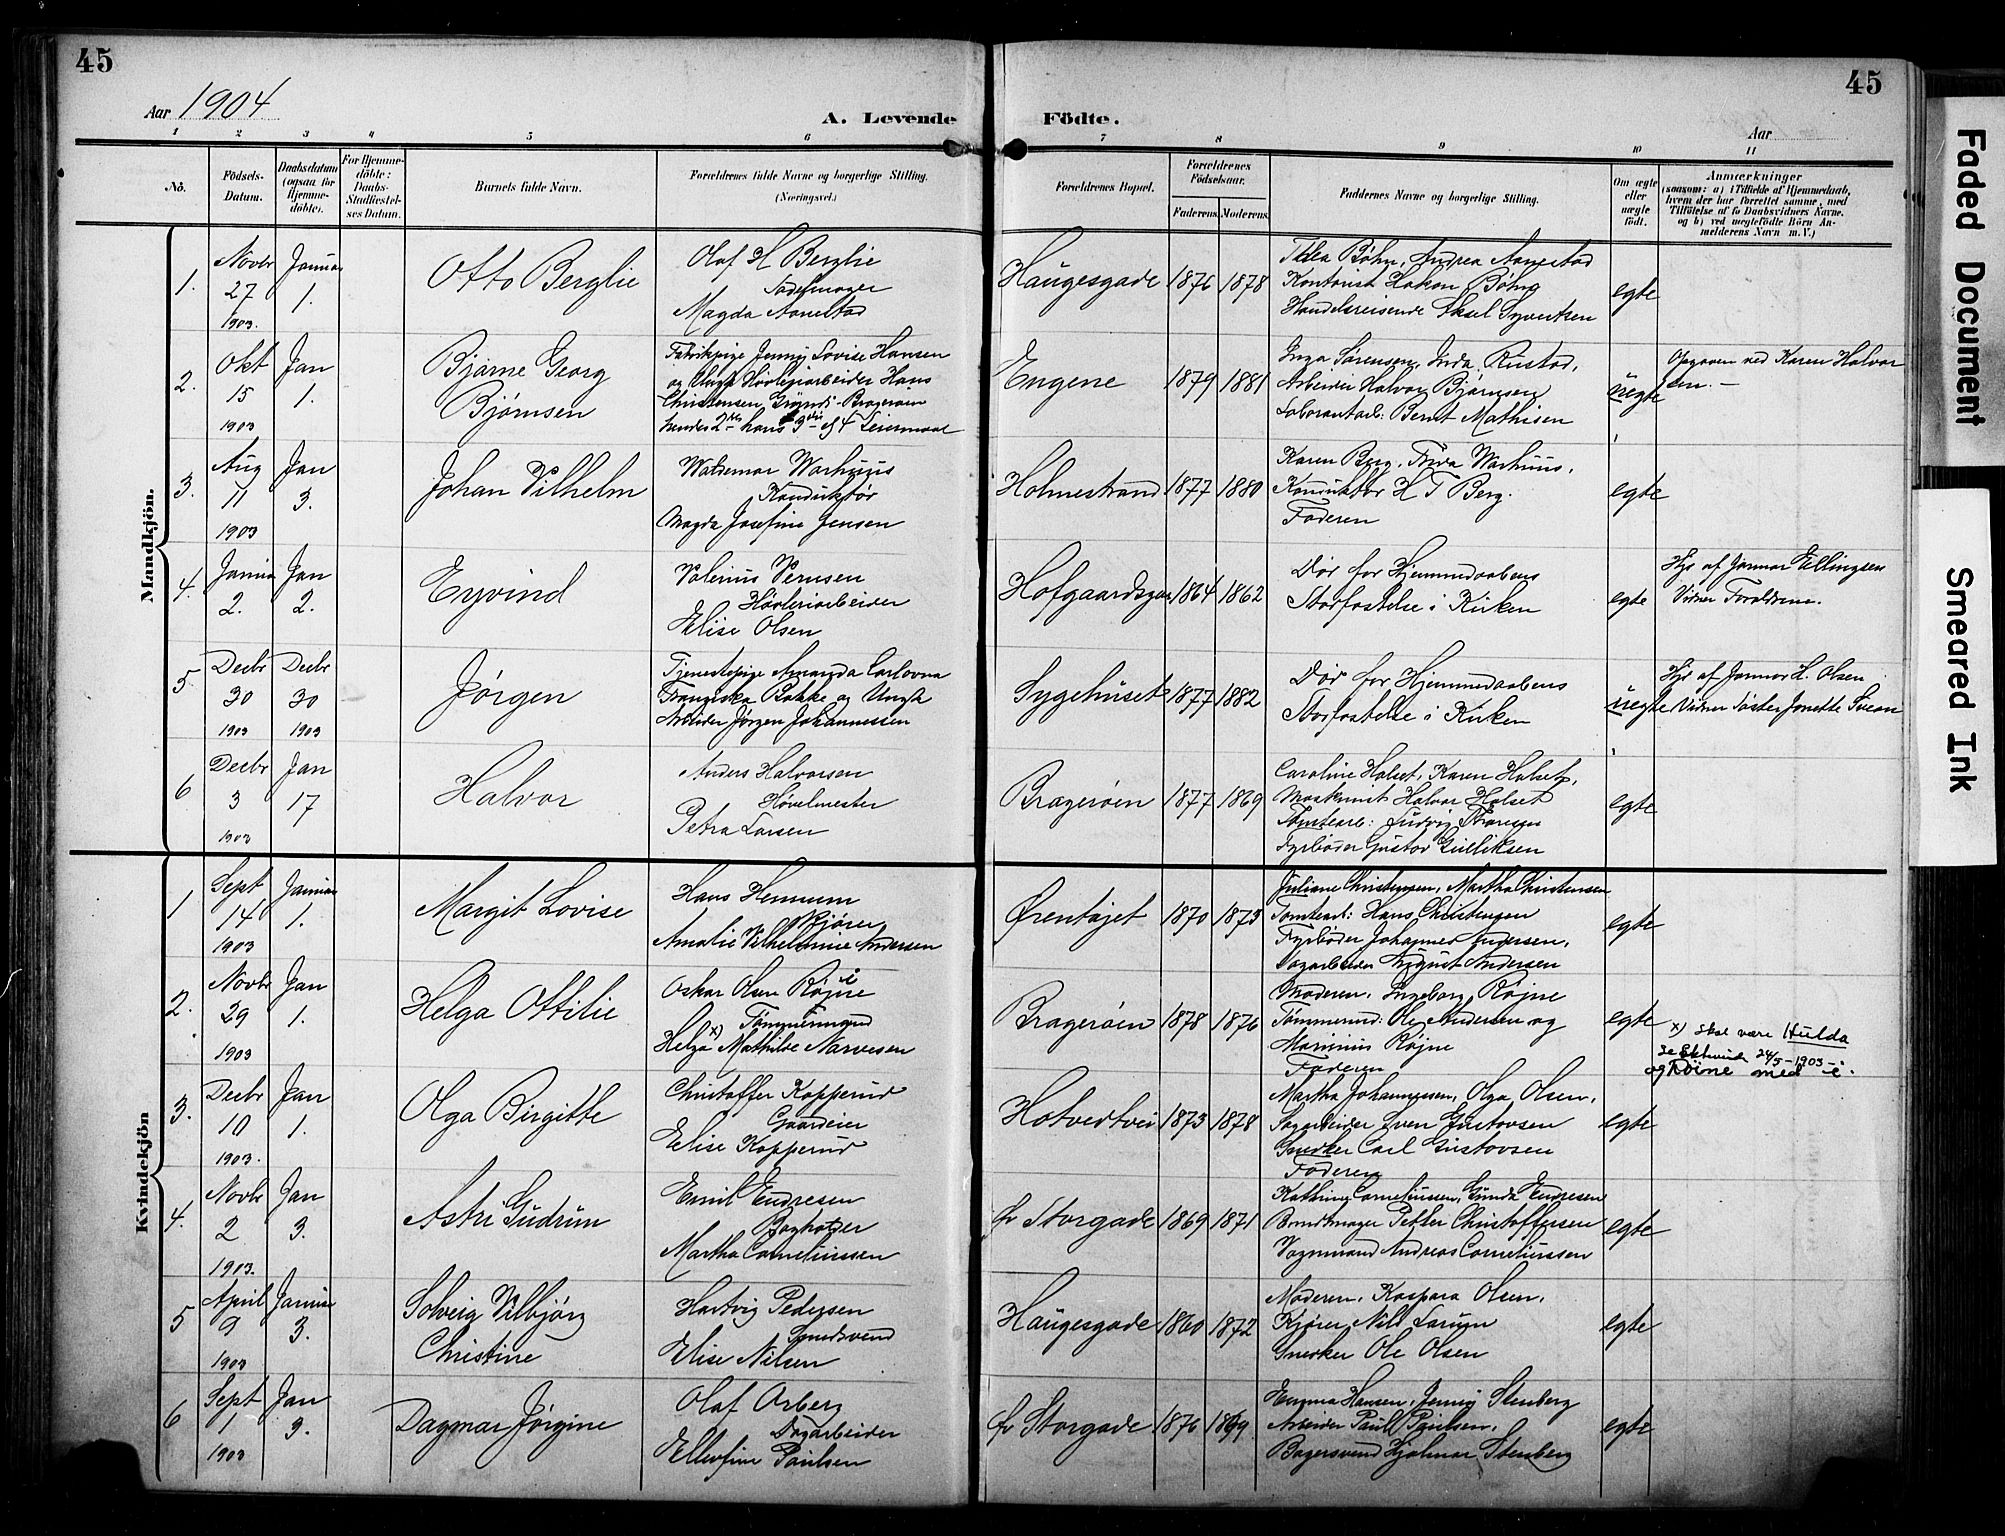 45
45
Aar 1904.
A. Levende
Födte.
Aar
1 2 3 4 5 6 7 8 9 10 11
No.
Födsels-
Datum.
Daabsdatum
(ogsaa for
Hjemme-
döbte).
For Hjemme-
döbte:
Daabs-
Stadfæstel-
ses Datum.
Barnets fulde Navn.
Forældrenes fulde Navne og borgerlige Stilling.
(Næringsvei.)
Forældrenes Bopæl.
Forældrenes
Födselsaar.
Faderens. Moderens.
Faddernes Navne og borgerlige Stilling.
Om ægte
eller
uægte
födt.
Anmærkninger
(saasom: a) i Tilfælde af Hjemmedaab,
hvem der har forrettet samme, med
Tilföielse af to Daabsvidners Navne,
og b) ved uægtefödte Börn An-
melderens Navn m. V.)
Mandkjön.
1.
Novbr
27
1903.
Januar
1.
Otto Berglie
Olaf H Berglie
Sadelmager
Magda Aanestad
Haugesgade
1876
1878
Thea Bøhn, Andrea Aanestad
Kontorist Hakon Bøhn
Handelsreisende Aksel Syvertsen
egte
2.
Okt
15
1903
Jan
1.
Bjarne Georg
Bjørnsen
Fabrikpige Jenny Lovise Hansen
og Ungk Høvleriarbeider Hans
Christensen Brageroen
hendes 2det hans 3die Leiermaal
Engene
1879
1881
Inga Sørensen, Inda Rustad,
Arbeider Halvor Bjørnsen
Laborantarb: Bernt Mathisen
uegte
Opgaven ved Karen Halvor
sen. -
3.
Aug
11
1903
Jan
3.
Johan Vilhelm
Waldemar Warhuus
Konduktør
Magda Josefine Jensen
Holmestrand
1877
1880
Karen Berg, Frida Warhuus,
Konduktør H T Berg.
Faderen
egte
4.
Januar
2.
Jan
2.
Eyvind
Valerius Vernsen
Høvleriarbeider
Elise Olsen
Hofgaardsgaden
1864
1862
Dør for Hjemmedaabens
Stadfestelse i Kirken
egte
Hjd af Jormor Ellingsen
Vidner Foreldrene.
5
Decbr
30
1903
Decbr
30
1903
Jørgen
Tjenestepige Amanda Carlovna
Franziska Bakke og Ungk
Arbeider Jørgen Johannessen
Sygehuset
1877
1882
Dør for Hjemmedaabens
Stadfestelse i Kirken
uegte
Hjd af Jormor H. Olsen
Vidner Søster Jonette Sveen
6
Decbr
3
1903
Jan
17
Halvor
Anders Halvorsen
Høvelmester
Petra Larsen
Brageroen
1877
1869
Caroline Halset, Karen Halset,
Maskinist Halvor Halset
Tomtearb: Ludvig Thoresen
Fyrbøder Gustav Gulliksen
egte
Kvindekjön
1
Sept
14
1903
Januar
1.
Margit Lovise
Hans Hennum
Kjører
Amalie Vilhelmine Andersen
Ørentøjet
1870
1873
Juliane Christensen, Martha Christensen
Tomtearb: Hans Christensen
Fyrbøder Johannes Andersen,
Sagarbeider August Andersen
egte
2.
Novbr
29
1903
Jan
1.
Helga Ottilie
Oskar Olsen Røjne
i
Tømmermand
x)
Helga Mathilde Narvesen
Brageroen
1878
1876
Moderen, Ingeborg Røjne
Tømmermd: Ole Andersen og
Marinius Røjne
Faderen
egte
x) skal være Hulda
se 24/5-1903-
og Røine med i.
3.
Decbr
10
1903.
Jan
1.
Olga Birgitte
Christoffer Kopperud
Gaardeier
Elise Kopperud
Hotvedtvei
1873
1878
Martha Johannesen, Olga Olsen,
Sagarbeider Sven Gustavsen
Snedker Carl Gustavsen
Faderen
egte
4.
Novbr
2
1903.
Jan
3.
Astri Gudrun
Emil Endresen
Bogholder
Martha Corneliussen
Øv Storgade
1869
1871
Kathine Corneliussen, Gunda Endresen
Bundtmager Petter Christoffersen
Vognmand Andreas Corneliussen
egte
5
April
9
1903
Januar
3.
Solveig Vilbjørg
Christine
Hartvig Pedersen
Smedsvend
Elise Nilsen
Haugesgade
1860
1872
Moderen, Kaspara Olsen,
Kjører Nils Larum
Snedker Ole Olsen
egte
6
Sept
1
1903
Jan
3.
Dagmar Jørgine
Olaf Arberg
Sagarbeider
Ellevfine Paulsen
Øv Storgade
1876
1869
Emma Hansen, Jenny Stenberg
Arbeider Paul Paulsen,
Bagersvend Hjalmar Stenberg
egte
Faded Document
Smeared Ink